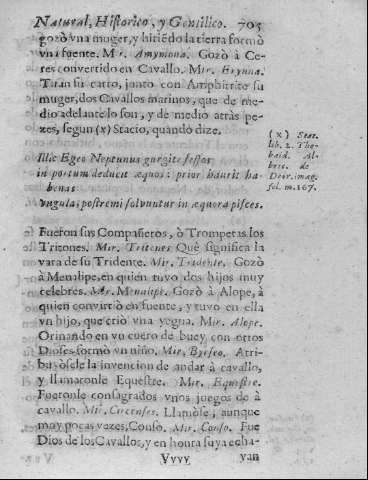 Natural, Historico, y Gentilico. 705
gozò vna muger, y hiriẽdo la tierra formò
vna fuente. Mir. Amymona. Gozò à Ce-
res convertido en Cavallo. Mir. Erynna.
Tiran su carro, junto con Amphitrite su
muger, dos Cavallos marinos, que de me-
dio adelante lo son, y de medio atràs pe-
zes, segun (x) Stacio, quando dize.
(x) Stac.
lib. 2. The-
baid. Al-
bric. de
Deor. imag.
fol. m. 167.
Illic Egeo Neptunus gurgite fessos
in portum deducit æquos: prior haurit ha-
benas
vngula; postremi solvuntur in æquora pisces.
Fueron sus Compañeros, ò Trompetas los
Tritones. Mir. Tritones Què significa la
vara de su Tridente. Mir. Tridente. Gozò
à Menalipe, en quien tuvo dos hijos muy
celebres. Mir. Menalipe. Gozò à Alope, à
quien convirtiò en fuente, y tuvo en ella
vn hijo, que criò vna yegua. Mir. Alope.
Orinando en vn cuero de buey con otros
Dioses formò vn niño. Mir. Byrseo. Atri-
buyòsele la invencion de andar à cavallo,
y llamaronle Equestre. Mir. Equestre.
Fueronle consagrados vnos juegos de à
cavallo. Mir. Circenses. Llamòse, aunque
muy pocas vezes, Conso. Mir. Conso. Fue
Dios de los Cavallos, y en honra suya echa-
Vvvv van